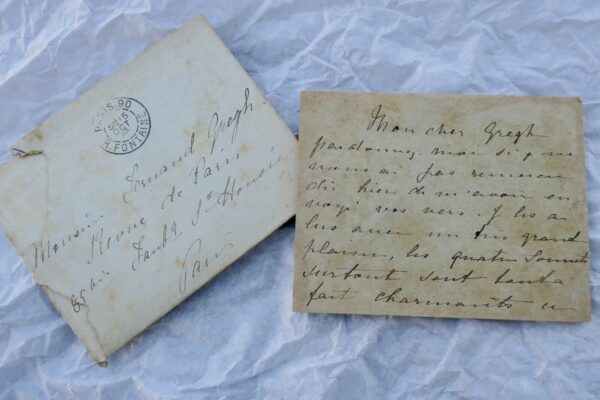 PARIS. 90
R. LA FONTAINE
Monsieur Fernand Gregh
Revue de Paris
85bis Faubg St Honoré
Paris
Mon cher Gregh
pardonnez moi si je ne
vous ai pas remercié
dès hier de m'avoir en
voyé vos vers. Je les ai
lus avec un très grand
plaisir, les quatre Sonnets
surtout sont tout à
fait charmants